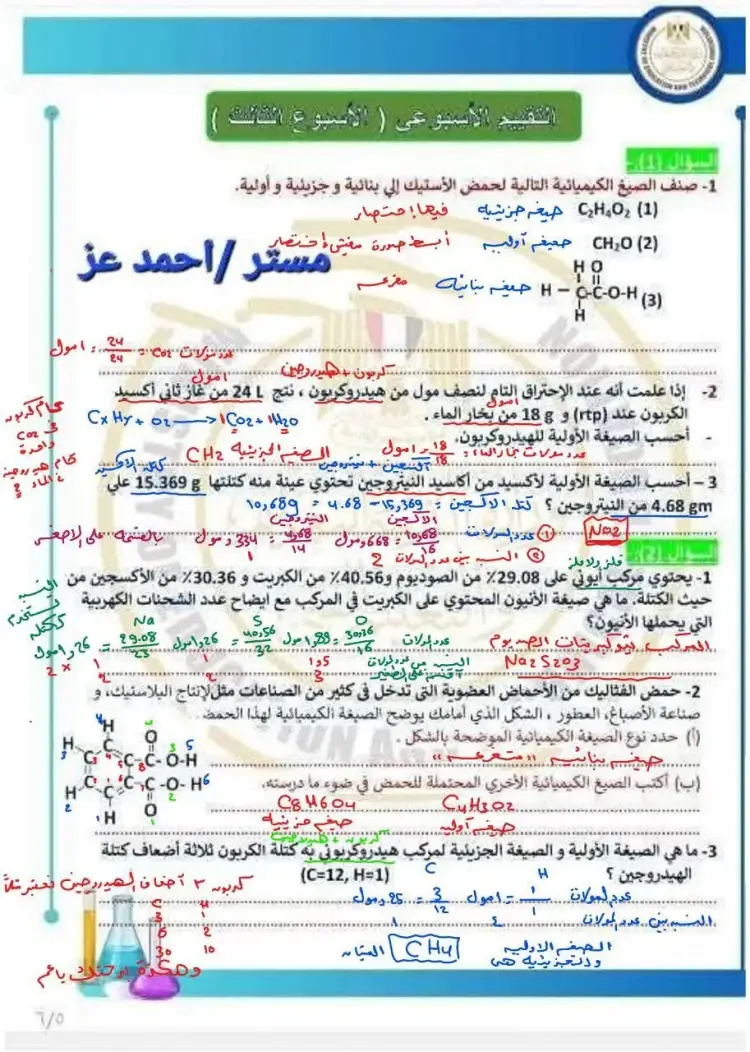 التقييم الأسبوعى ( الأسبوع الثالث )
السؤال (1):
1- صنف الصيغ الكيميائية التالية لحمض الأستيك إلي بنائية و جزيئية و أولية.
C₂H₄O₂ (1) صيغه جزيئيه فيها إختصار
CH₂O (2) صيغه أوليه أبسط صورة مفيش إختصار
مستر /احمد عز
H O
H – C-C-O-H (3) صيغه بنائيه
H
عدد مولات CO₂ = 24/24 = 1 مول
كربون + هيدروجين
1 مول
2- إذا علمت أنه عند الإحتراق التام لنصف مول من هيدروكربون ، نتج 24 L من غاز ثاني أكسيد
الكربون عند (rtp) و 18 g من بخار الماء .
CxHy + O₂ → 1CO₂ + 1H₂O
- أحسب الصيغة الأولية للهيدروكربون.
عدد مولات بخار الماء = 18/18 = 1 مول
الصيغه الجزيئيه CH2
3 – أحسب الصيغة الأولية لأكسيد من أكاسيد النيتروجين تحتوي عينة منه كتلتها 15.369 g علي
4.68 gm من النيتروجين ؟ كتلة الاكسجين = 15,369 - 4.68 = 10,689
الاكسجين النيتروجين
① عدد المولات 10,68/16 = 668 ومول 4,68/14 = 334 ومول بالقسمه على الاصغر
NO2
② النسب بين عدد المولات 2 1
السؤال (2):
1- يحتوي مركب أيوني على 29.08٪ من الصوديوم و40.56٪ من الكبريت و 30.36٪ من الأكسجين من
حيث الكتلة. ما هي صيغة الأنيون المحتوي على الكبريت في المركب مع ايضاح عدد الشحنات الكهربية
التي يحملها الأنيون؟
Na S O
عدد المولات 30,36/16 40,56/32 29.08/23
المركب ثيوكبريتات الصوديوم
Na2S2O3
2- حمض الفثاليك من الأحماض العضوية التى تدخل فى كثير من الصناعات مثل لإنتاج البلاستيك، و
صناعة الأصباغ، العطور ، الشكل الذي أمامك يوضح الصيغة الكيميائية لهذا الحمض.
(أ) حدد نوع الصيغة الكيميائية الموضحة بالشكل .
صيغه بنائيه
(ب) أكتب الصيغ الكيميائية الأخري المحتملة للحمض في ضوء ما درسته.
C4H3O2 C8H6O4
صيغه أوليه صيغه جزيئيه
كربون + هيدروجين
3- ما هي الصيغة الأولية و الصيغة الجزيئية لمركب هيدروكربوني به كتلة الكربون ثلاثة أضعاف كتلة
الهيدروجين ؟ (C=12, H=1)
C H
عدد المولات 1/1 = 1 مول 3/12 = 25, ومول
النسب بين عدد المولات 4 1
الصيغه الاوليه
والجزيئيه هى CH4 الميثان
كربون 3 أضعاف الهيدروجين
C H
3 1
6 2
30 10
٦/٥